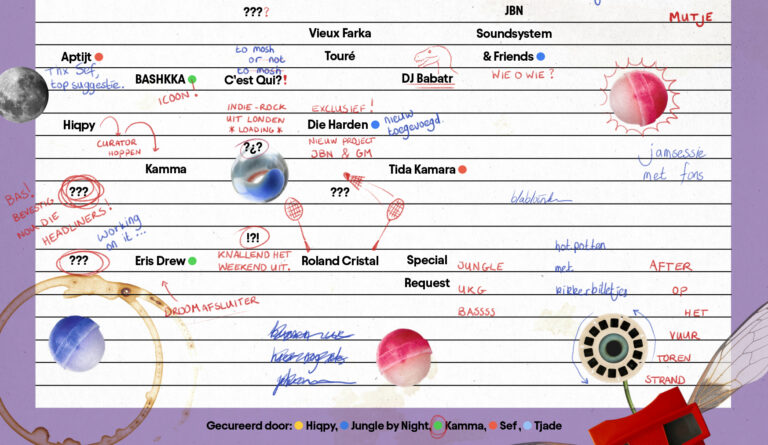 ????
JBN
MUTJE
Vieux Farka
Soundsystem
Aptijt
to mosh
or not
to mosh
Touré
& Friends
Thx Sef,
top suggestie.
BASHKKA
C'est Qui?!
DJ Babatr
WIE O WIE?
ICOON!
INDIE-ROCK
UIT LONDEN
* LOADING *
EXCLUSIEF!
Hiqpy
Die Harden
nieuw
toegevoegd.
CURATOR
HOPPEN
NIEUW PROJECT
JBN & GM
?¿?
jamsessie
met fons
Kamma
Tida Kamara
BAS!
BEVESTIG
NOU DIE
HEADLINERS!
???
???
blablabla
working
on it...
!?!
???
Eris Drew
KNALLEND HET
WEEKEND UIT.
Roland Cristal
Special
Request
JUNGLE
UKG
BASSSS
hotpotten
met
kikkerbilletjes
AFTER
OP
HET
VUUR
TOREN
STRAND
DROOMAFSLUITER
Gecureerd door: Hiqpy, Jungle by Night, Kamma, Sef, Tjade